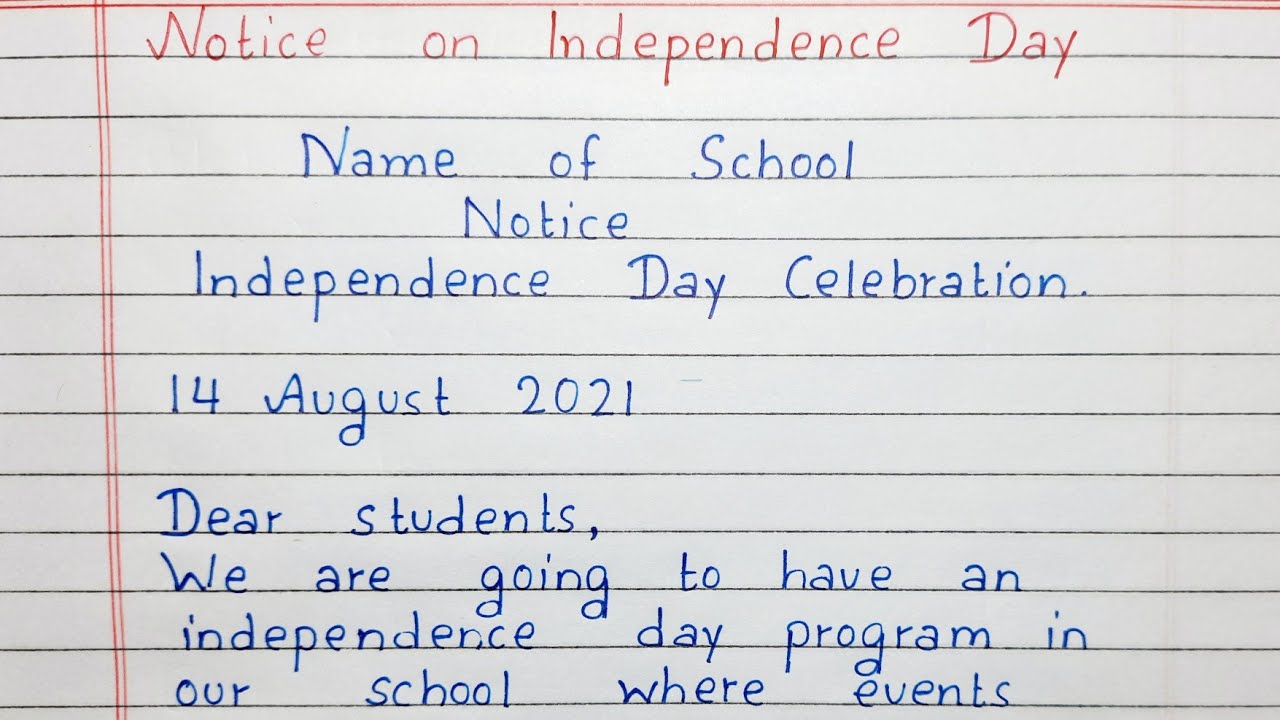 Notice on Independence Day
Name of School
Notice
Independence Day Celebration.
14 August 2021
Dear students,
We are going to have an
independence day program in
our school where events